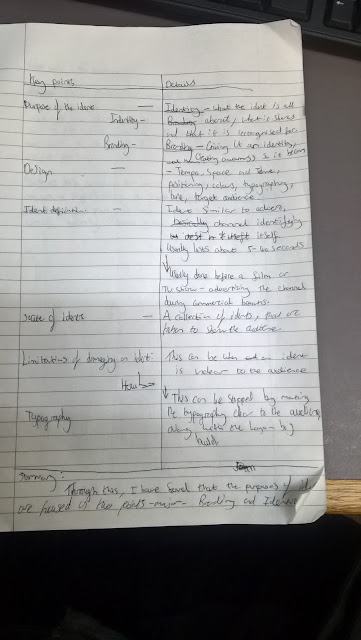 Key points Details
Purpose of the ident — Identity - what the ident is all
Identity - Branding about, what it shows
and what it is recognised for.
Branding - Branding - Giving it an identity,
Creating awareness so it
Design — - Tempo, Space and Time,
positioning, colour, typography,
tone, target audience
Ident definition — Ident similar to adverts,
Basically channel identifying
itself
Usually lasts about 5-
Usually done before a film or
TV show - advertising the channel
during commercial breaks.
Suite of idents — A collection of idents, that are
taken to show the audience
Limitations of This can be when an ident
is unclear to the audience
How
This can be stopped by making
Typography the typography clear to the audience,
along with the
build.
Summary:
Through this, I have found that the purposes of
are focused of two points - major - Branding and